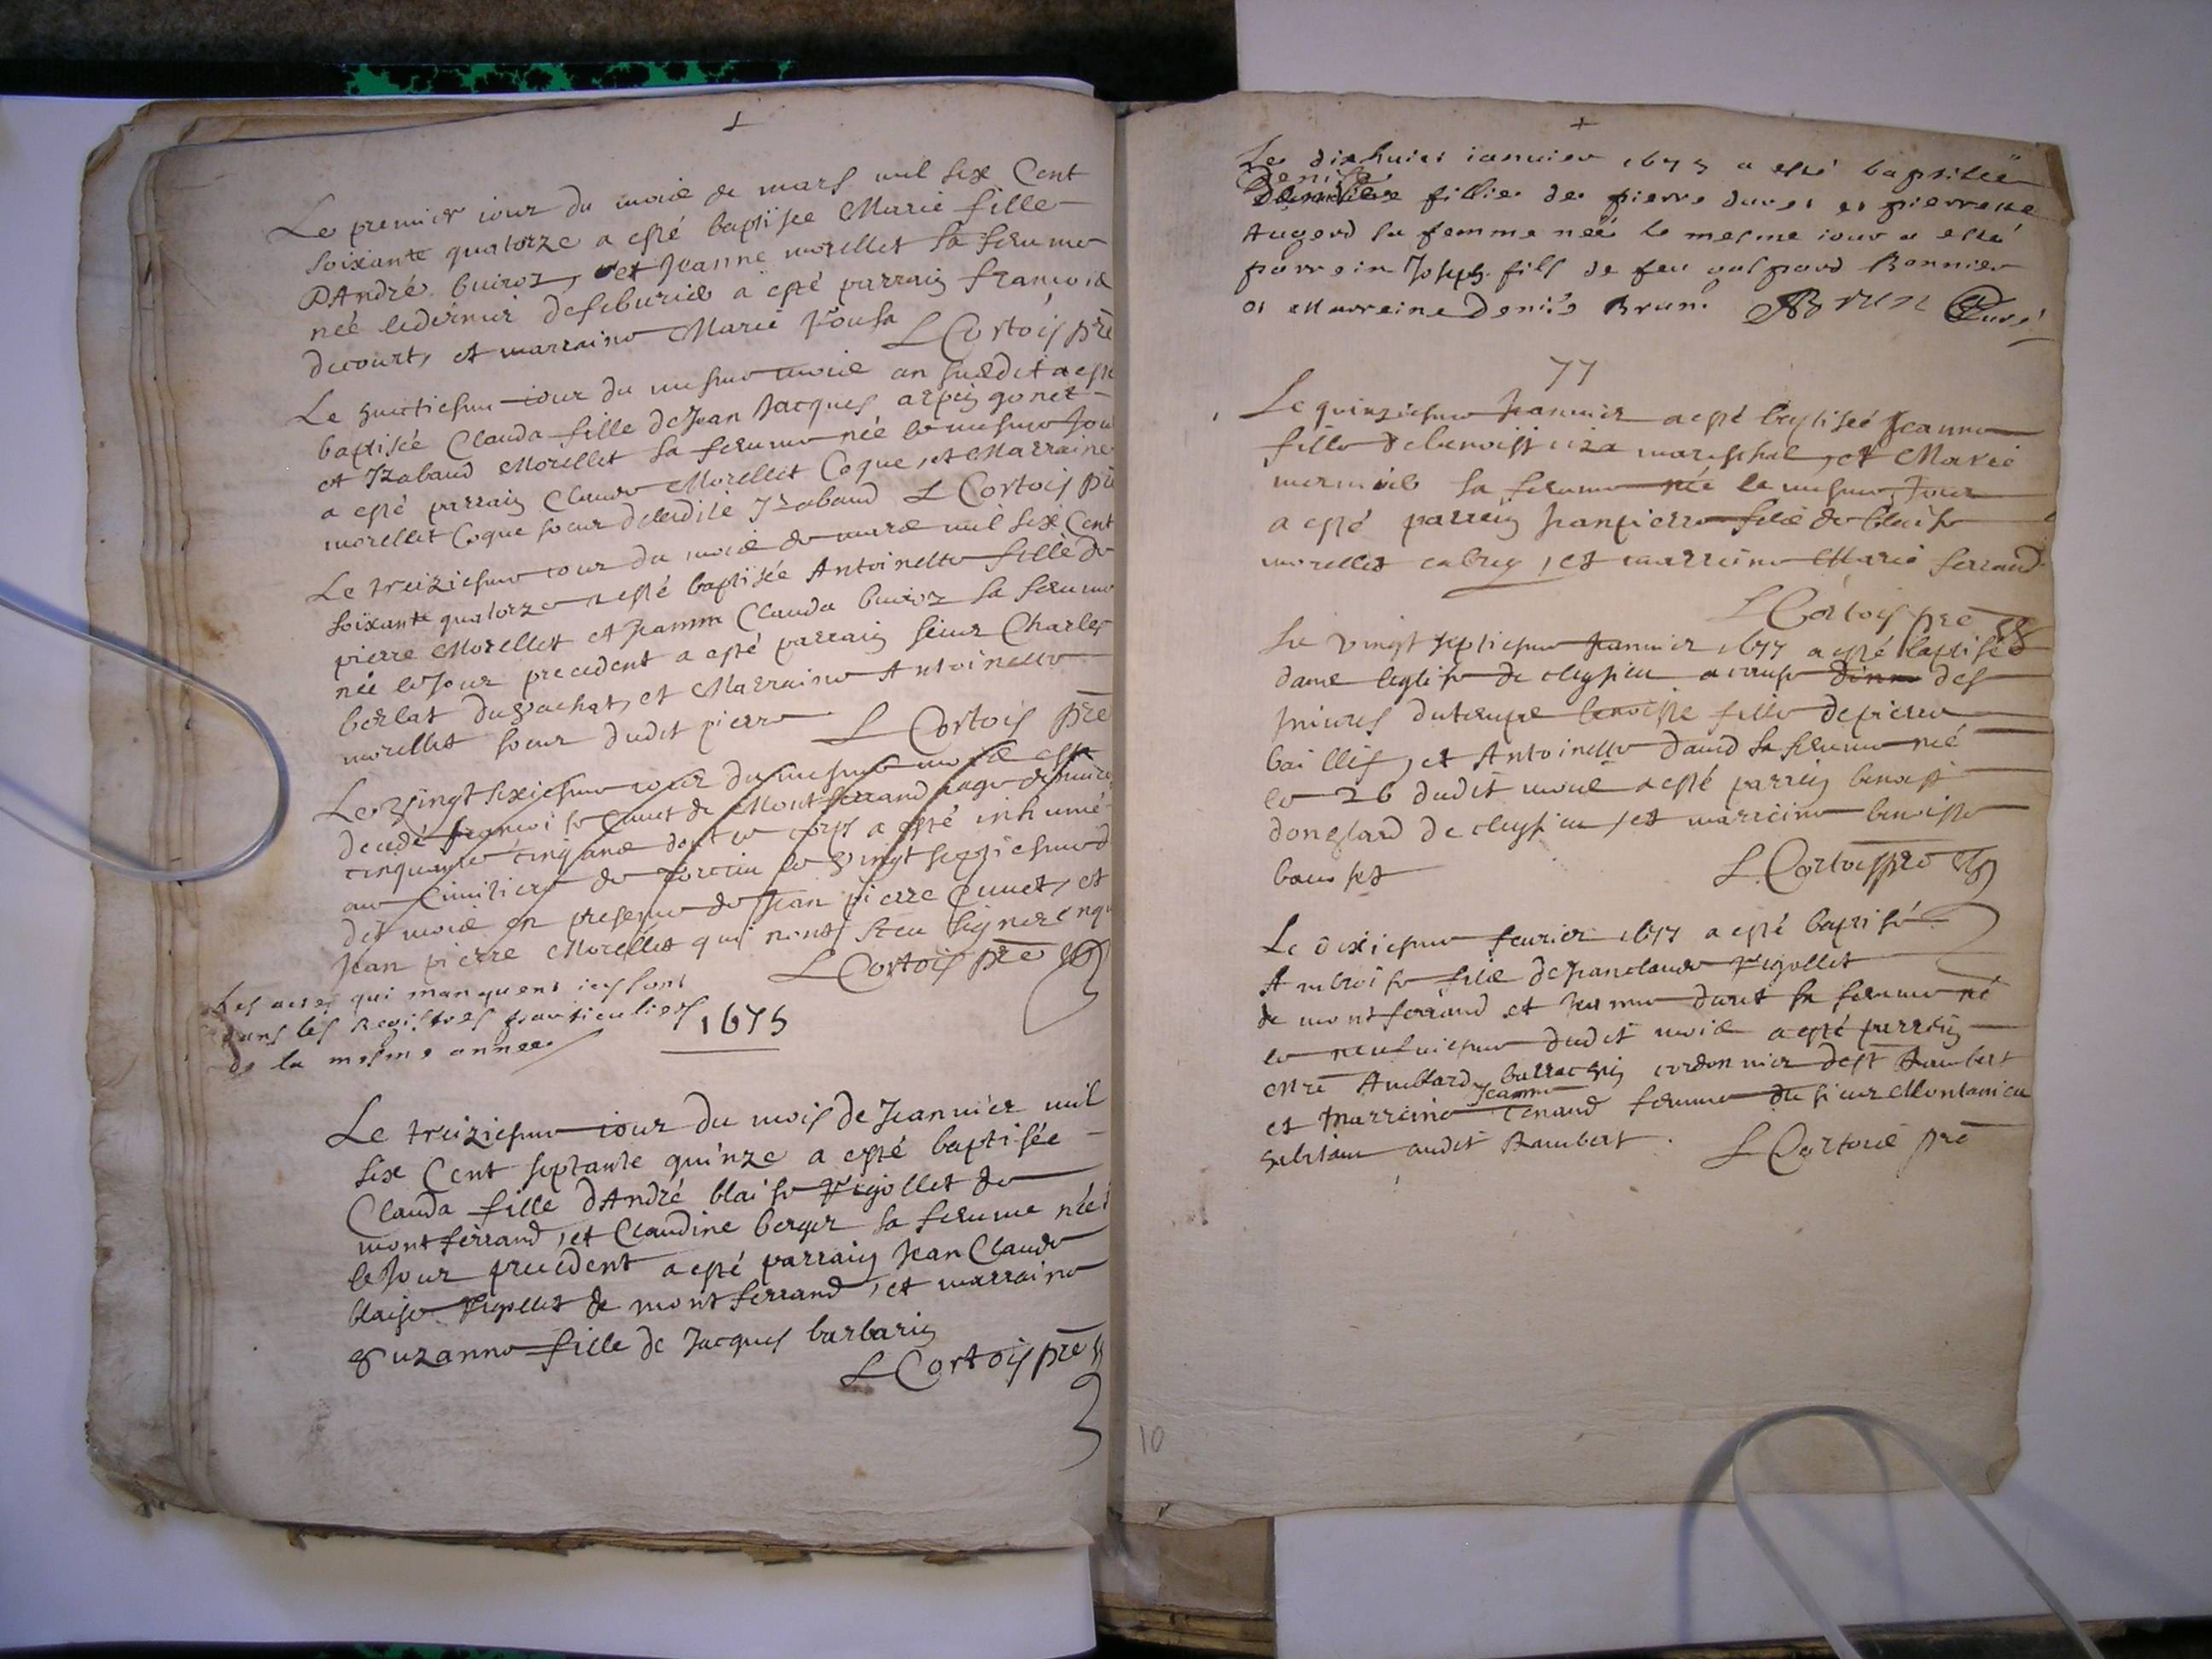 Le premier iour du moie de mars mil sex Cent
soixante quatorze a esté baptisée Marie fille
D'André buiroz, et Jeanne morellet sa femme
née ledernier defeburie a esté parraig francoie
decourt, et marraine Marie
L Cortois pre
Le huictiesme iour du mesme moie an susdit a esté
baptisée Clauda fille de Jean Jacques arpig gonet
et Izabaud Morellet sa femme née le mesme Jour
a esté parraig Claude Morellet Coque, et Marraine
morellet Coque soeur deladite Izabaud L Cortois pre
Le treiziesme iour du moie de mars mil sex Cent
soixante quatorze a esté baptisée Antoinette fille de
pierre Morellet et Jeanne Clauda buiroz sa femme
née le Jour precedent a esté parraig sieur Charles
berlat du, et Marraine Antoinette
morellet soeur dudit pierre L Cortois pre
Le Vingt sexiesme iour du mesme moie est
decedé francoise Cunet de Montferrand
cinquante cinq ans dont le corps a esté inhumé
au Cimitiere de torcieu le Vingt septiesme d
dit moie en presence de Jean pierre Cunet, et
Jean pierre Morellet qui nont sceu signer enqu
L Cortois pre
Les actes qui manquent icy sont
dans les Registres particuliers
de la mesme annee
1675
Le treiziesme iour du mois de Jeanuier mil
sex Cent septante quinze a esté baptisée
Clauda fille d'André blaise Vigollet de
montferrand, et Claudine berger sa femme née
le Jour precedent a esté parraig Jean Claude
blaise Vigollet de montferrand, et marraine
Suzanne fille de Jacques barbarig
L Cortois pre
Le dixhuict ianuier 1675 a esté baptisée
Denise
fillie de pierre duret et pierrette
Augerd sa femme neé le mesme iour a esté
parrein Joseph fils de feu gaspard Bonnier
et Marreine Denise Brun. Brun Curé
77
Le quinziesme Jeanuier a esté baptiseé Jeanne
fille de benoist mareschal, et Marie
sa femme née le mesme Jour
a esté parreig Jeanpierre filz de blaise
morellet cabrey, et marreine Marie ferrand
L Cortois pre
Le vingt septiesme Jeanuier 1677 a esté baptisée
dans leglise de cleysieu a cause des
iniures du temps benoiste fille depierre
baillif, et Antoinette dauid sa femme neé
le 26 dudit moie a esté parreig benoist
donglard de cleysieu, et marreine benoiste
L Cortois pre
Le dixiesme feurier 1677 a esté baptisé
Ambroise filz de Jeanclaude Vigollet
de montferrand et Jeanne duret sa femme né
le neufuiesme dudit moie a esté parreig
Mre Anthard cordonnier de St Rambert
Jeanne
et marreine Tenand femme du sieur Montanieu
habitant audit Rambert. L Cortois pre
10